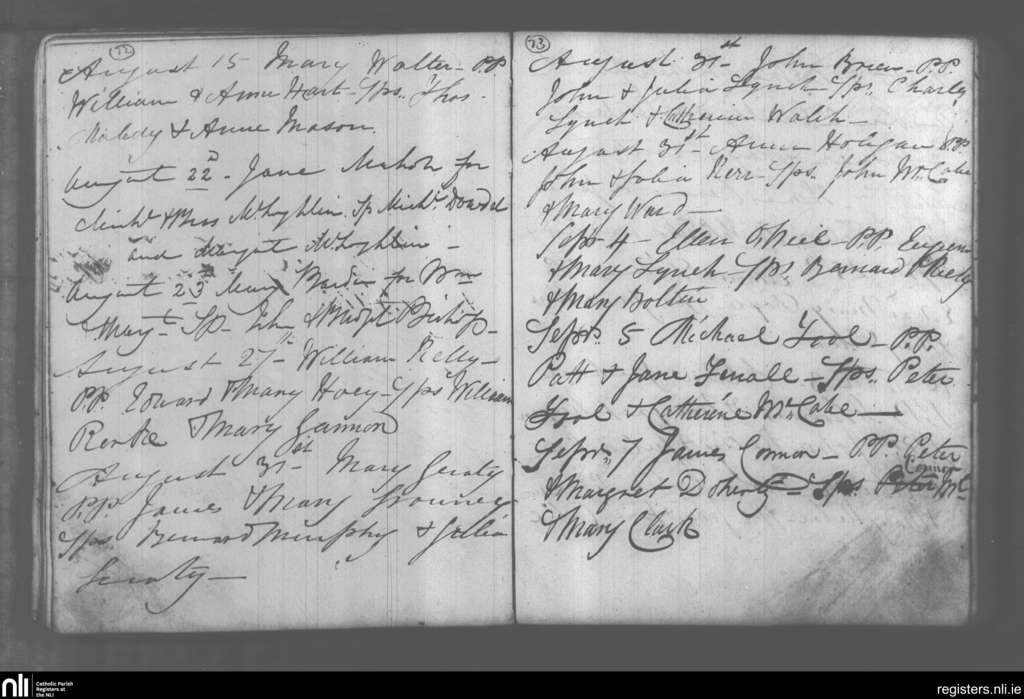 72
August 15 Mary Walter - P.P.
William & Anne Hart - Sps. Thos.
& Anne Mason.
August 22d. Jane for
& McLoghlin. Sp Michl. Dowdel
and Margat McLoghlin -
August 23d Mary for Wm
& Mary - Sp - John & Bridgt Bishop -
August 27 - William Kelly -
P.P. Edward & Mary Hoey - Sps William
Rorke & Mary Gannon
August 31st - Mary Geraty
P.P. James & Mary
Sps. Bernard Murphy & Julia
Geraty -
73
August 31st John Brien - P.P.
John & Julia Lynch - Sps. Charly
Lynch & Catherine Walsh -
August 31st - Anne Holigan P.P.
John & Julia Kerr - Sps. John McCabe
& Mary Ward -
Sepr 4 - Ellen O'Neil - P.P. Eugene
& Mary Lynch - Sps. Bernard O'Reely
& Mary Bolton
Sepr. 5 Michael Tool - P.P.
Patt & Jane - Sps. Peter
Tool & Catherine McCabe -
Sepr. 7 James Connor - P.P. Peter
Connor
& Margret Doherty - Sps Peter Mc
& Mary Clark
nli
Catholic Parish
Registers at
the NLI
registers.nli.ie